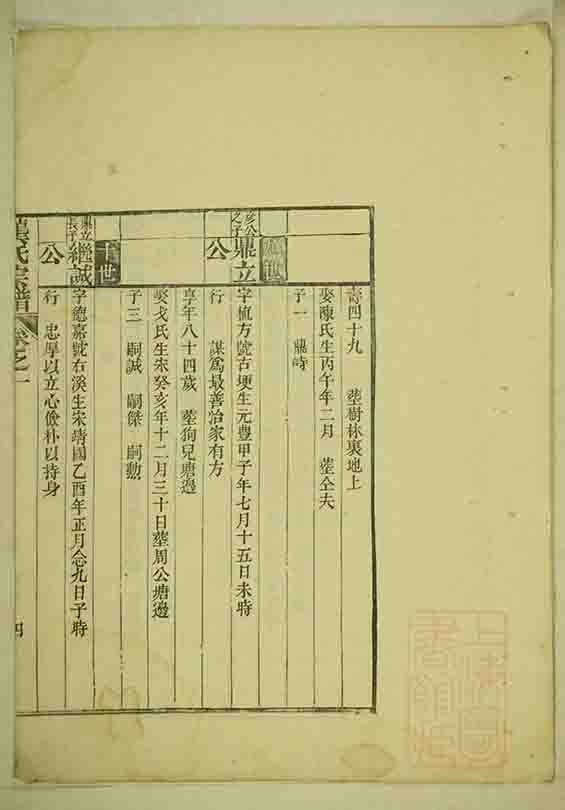 壽四十九 塟樹林裏地上
娶陳氏生丙午年二月 塟仝夫
子一 鼎峙
九世
彥公之子
鼎立公
字植方號古埂生元豐甲子年七月十五日未時
行 謀爲最善治家有方
享年八十四歲 塟狗兒塘邊
娶戈氏生宋癸亥年十二月三十日塟周公塘邊
子三 嗣誠 嗣傑 嗣勲
十世
鼎立長子
繼誠公
字德嘉號右溪生宋靖國乙酉年正月念九日子時
行 忠厚以立心儉朴以持身
氏宗譜 卷之一
四